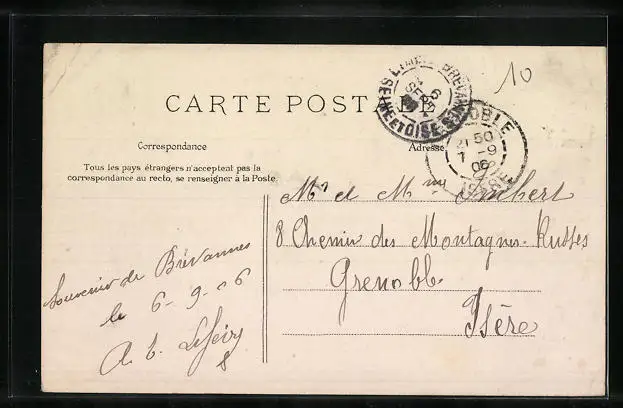 10
CARTE POSTALE
LIMEIL-BREVANNES
SEINE-ET-OISE
6
SEPT
GRENOBLE
21 50
7 -9
06
ISERE
Correspondance
Adresse
Tous les pays étrangers n'acceptent pas la
correspondance au recto, se renseigner à la Poste.
Mr et Mme Imbert
8 Chemin des Montagnes-Russes
Grenoble
Isère
Souvenir de Brévannes
le 6-9-06
A. b.